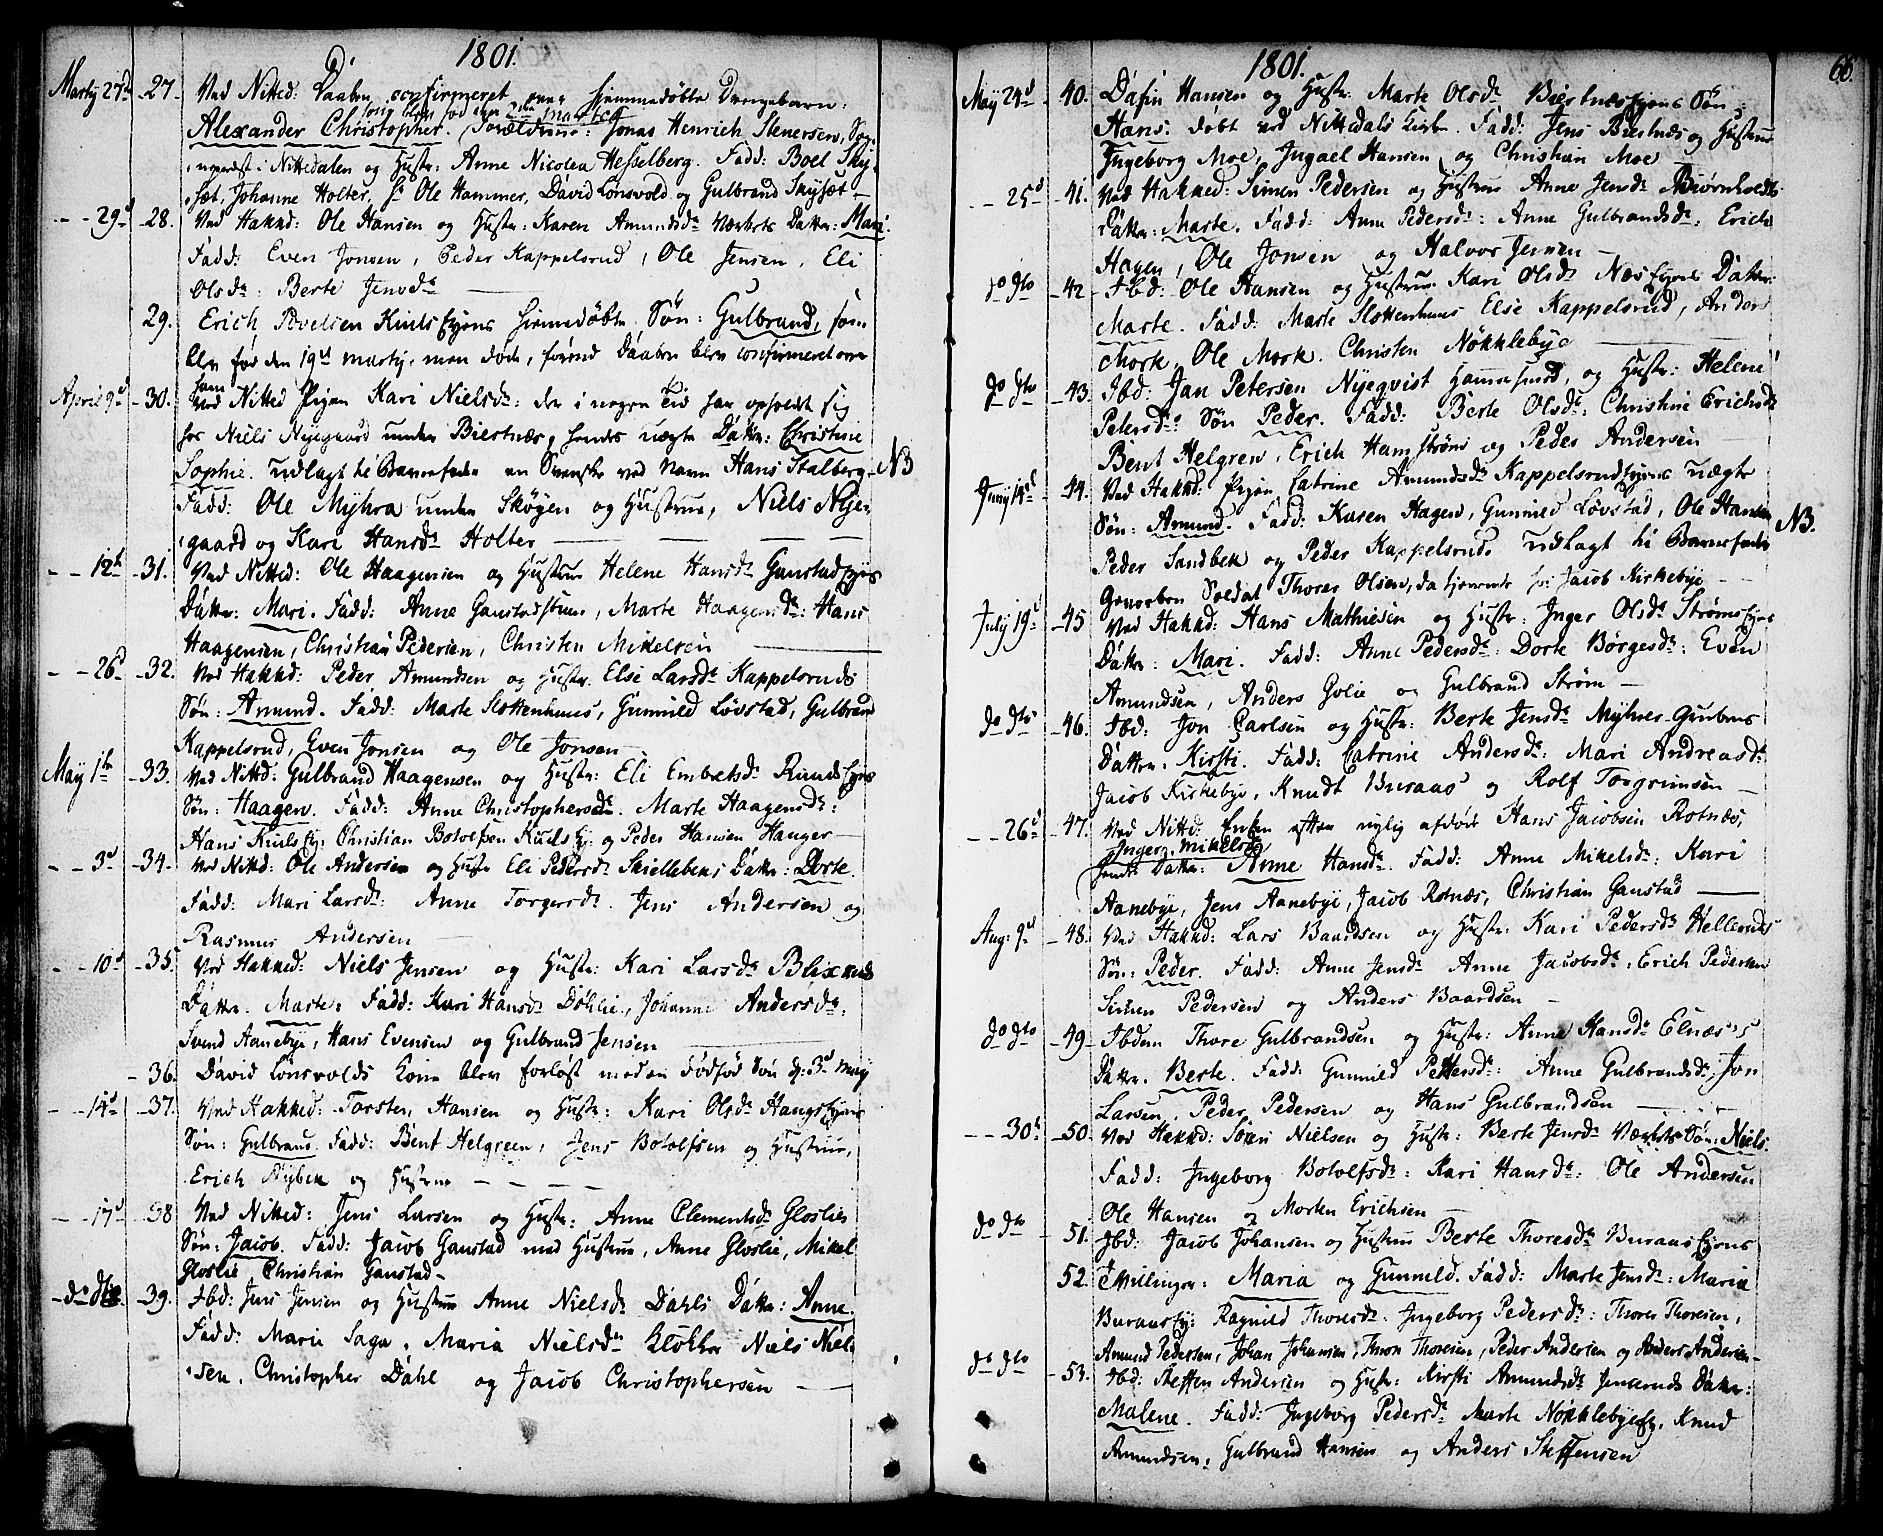 1801.
Marty 27de 27. Ved Nitted: Daaben confirmeret over hjemmedøbte Drengebarn:
som blev fød den 2den Martii
Alexander Christopher. Forældrene: Jonas Henrich Stenersen, Sog-
nepræst i Nittedalen og Hustr: Anne Nicolea Hesselberg. Fadd: Boel Sky-
sæt, Johanne Holter, Sr Ole Hammer, David Lønsvold og Gulbrand Skysæt
- - 29d 28. Ved Hakkd: Ole Hansen og Hustr: Karen Amundsdr Værkets Datter: Mari.
Fadd: Even Jonsen, Peder Kappelsrud, Ole Jensen, Eli
Olsdr: Berte Jensdr
29. Erich Povelsen Kiulsejens hjemmedøbte Søn: Gulbrand, som
blev fød den 19de Marty, men døde, førend Daaben blev confirmeret over
ham
April 9d 30. Ved Nitted Pigen Kari Nielsdr: der i nogen Tid har opholdt sig
hos Niels Nyegaard under Biertnæs, hendes uægte Datter: Christine
Sophie. Udlagt til Barnefader en Svenske ved Navn Hans Stalberg NB
Fadd: Ole Myhra under Skøgen og Hustrue, Niels Nye-
gaard og Kari Hansdr Holter
- - 12t 31. Ved Nitted: Ole Haagensen og Hustrue Helene Hansdr Ganstadejes
Datter: Mari. Fadd: Anne Ganstadstuen, Marte Haagensdr: Hans
Haagensen, Christian Pedersen, Christen Mikelsen
- - 26d 32. Ved Hakkd: Peder Amundsen og Hustr: Else Larsdr Kappelsruds
Søn: Amund. Fadd: Marte Slottenhuus, Gunnild Løvstad, Gulbrand
Kappelsrud, Even Jonsen og Ole Jonsen
May 1te 33. Ved Nittd: Gulbrand Haagensen og Hustr: Eli Embretsdr Rundsejes
Søn: Haagen. Fadd: Anne Christophersdr. Marte Haagensdr:
Hans Kiulsej: Christian Botolfsen Kiulsej og Peder Hansen Hauger
- - 3d 34. Ved Nittd: Ole Andersen og Hustr Eli Pedersdr Skiellebeks Datter: Dorte.
Fadd: Mari Larsdr: Anne Torgersdr. Jens Andersen og
Rasmus Andersen
- - 10d 35. Ved Hakked: Niels Jensen og Hustr: Kari Larsdr Blixruds
Datter. Marte: Fadd: Kari Hansdr Døhlie, Johanne Andersdr.
Svend Aanebye, Hans Evensen og Gulbrand Jensen
36. David Lønsvolds Kone blev forløst med en dødfød Søn d: 3d May
- - 14d 37. Ved Hakked: Torsten Hansen og Hustr: Kari Olsdr Haugsejens
Søn: Gulbrand. Fadd: Bent Helgreen, Jens Botolfsen og Hustrue,
Erich Nybek og Hustrue
- - 17d 38 Ved Nitted: Jens Larsen og Hustr: Anne Clementsdr Gloslies
Søn: Jacob. Fadd: Jacob Ganstad med Hustrue, Anne Gloslie, Mikel
Gloslie Christian Ganstad
- do dto 39. Ibd: Jens Jensen og Hustrue Anne Nielsdr Dahls Datter: Anne.
Fadd: Marie Saga, Maria Nielsdr Klokker Niels Niel-
sen, Christopher Dahl og Jacob Christophersen
1801. 66.
May 24d 40. Dafin Hansen og Hustr: Marte Olsdr Biertnæsejens Søn:
Hans: døbt ved Nittedals Kirke. Fadd: Jens Biertnæs og Hustrue
Ingeborg Moe, Ingael Hansen og Christian Moe
- - 25d 41. Ved Hakked: Simen Pedersen og Hustrue Anne Jensdr Biørnholdts
Datter: Marte. Fadd: Anne Pedersdr: Anne Gulbrandsdr: Erich
Hagen, Ole Jonsen og Halvor Jensen
do dto 42 Ibd: Ole Hansen og Hustrue Kari Olsdr Næsejens Datter
Marte. Fadd: Marte Slottenhuus Else Kappelsrud, Anders
Mork, Ole Mork. Christen Nøkklebye
do dto 43. Ibd: Jan Petersen Nyeqvist Hammersmed, og Hustr: Helene
Petersdr: Søn Peder. Fadd: Berte Olsdr: Christine Erichsdr
Bent Helgren, Erich Hamstrøm og Peder Andersen
Juny 14d 44. Ved Hakkd: Pigen Catrine Amundsdr Kappelsrudejens uægte
Søn: Amund. Fadd: Karen Hagen, Gunnild Løvstad, Ole Hansen NB.
Peder Sandbek og Peder Kappelsrud. Udlagt til Barnefader
Gevorben Soldat Thorer Olsen, da tjenende hos Jacob Kirkebye
July 19d 45 Ved Hakkd: Hans Mathiesen og Hustr: Inger Olsdr Strømsejes
Datter: Mari. Fadd: Anne Pedersdr: Dorte Børgesdr: Even
Amundsen, Anders Golie og Gulbrand Strøm
do dto 46. Ibd: Jon Carlsen og Hustr: Berte Jensdr Myhrer-Grubens
Datter. Kirsti. Fadd: Catrine Andersdr: Mari Andreasdr
Jacob Kirkebye, Knudt Buraas og Rolf Torgrimsen
- - 26d 47. Ved Nittd: Enken efter nylig afdøde Hans Jacobsen Rotnæs,
Inger Mikelsdr
hendes Datter: Anne Hansdr. Fadd: Anne Mikelsdr: Kari
Aanebye, Jens Aanebye, Jacob Rotnæs, Christian Ganstad
Aug: 9d 48. Ved Hakkd: Lars Baardsen og Hustr: Kari Pedersdr Helleruds
Søn: Peder. Fadd: Anne Jensdr Anne Jacobsdr: Erich Pedersen
Simen Pedersen og Anders Baardsen
do dto 49 Ibdem Thore Gulbrandsen og Hustr: Anne Hansdr Elnæs's
Datter. Berte. Fadd: Gunnild Pettersdr: Anne Gulbrandsdr: Jon
Larsen. Peder Pedersen og Hans Gulbrandsen
- - 30t 50. Ved Hakkd: Søren Nielsen og Hustr: Berte Jensdr Værkets Søn: Niels.
Fadd: Ingeborg Botolfsdr: Kari Hansdr: Ole Andersen
Ole Hansen og Morten Erichsen
do dto 51. Ibd: Jacob Johansen og Hustrue Berte Thoresdr Buraasejens
52. Tvillinger: Maria og Gunnild. Fadd: Marte Jensdr: Maria
Buraasej: Ragnild Thoresdr. Ingeborg Pedersdr: Thorer Thoresen,
Amund Pedersen, Johan Johansen, Thron Thoresen, Peder Andersen og Anders Andersen
do dto 53. Ibd: Steffen Andersen og Hustr: Kirsti Amundsdr Jensruds Datter:
Malene. Fadd: Ingeborg Pedersdr Marte Nøkklebyeej. Knud
Amundsen, Gulbrand Hansen og Anders Steffensen